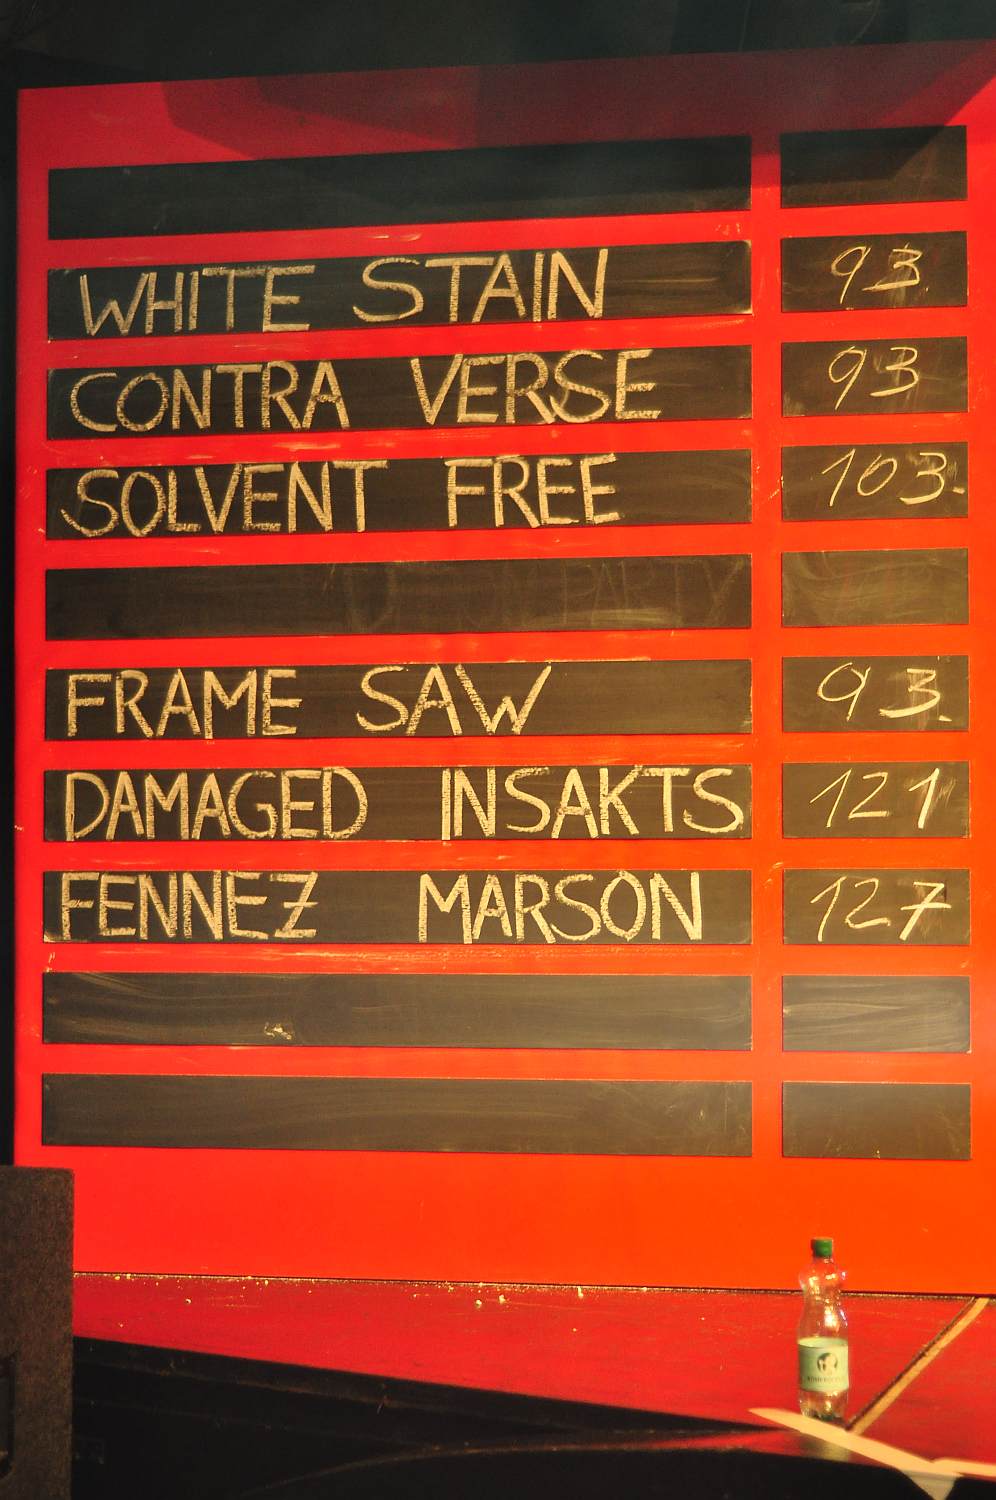 WHITE STAIN 93.
CONTRA VERSE 93
SOLVENT FREE 103.
FRAME SAW 93.
DAMAGED INSAKTS 121
FENNEZ MARSON 127